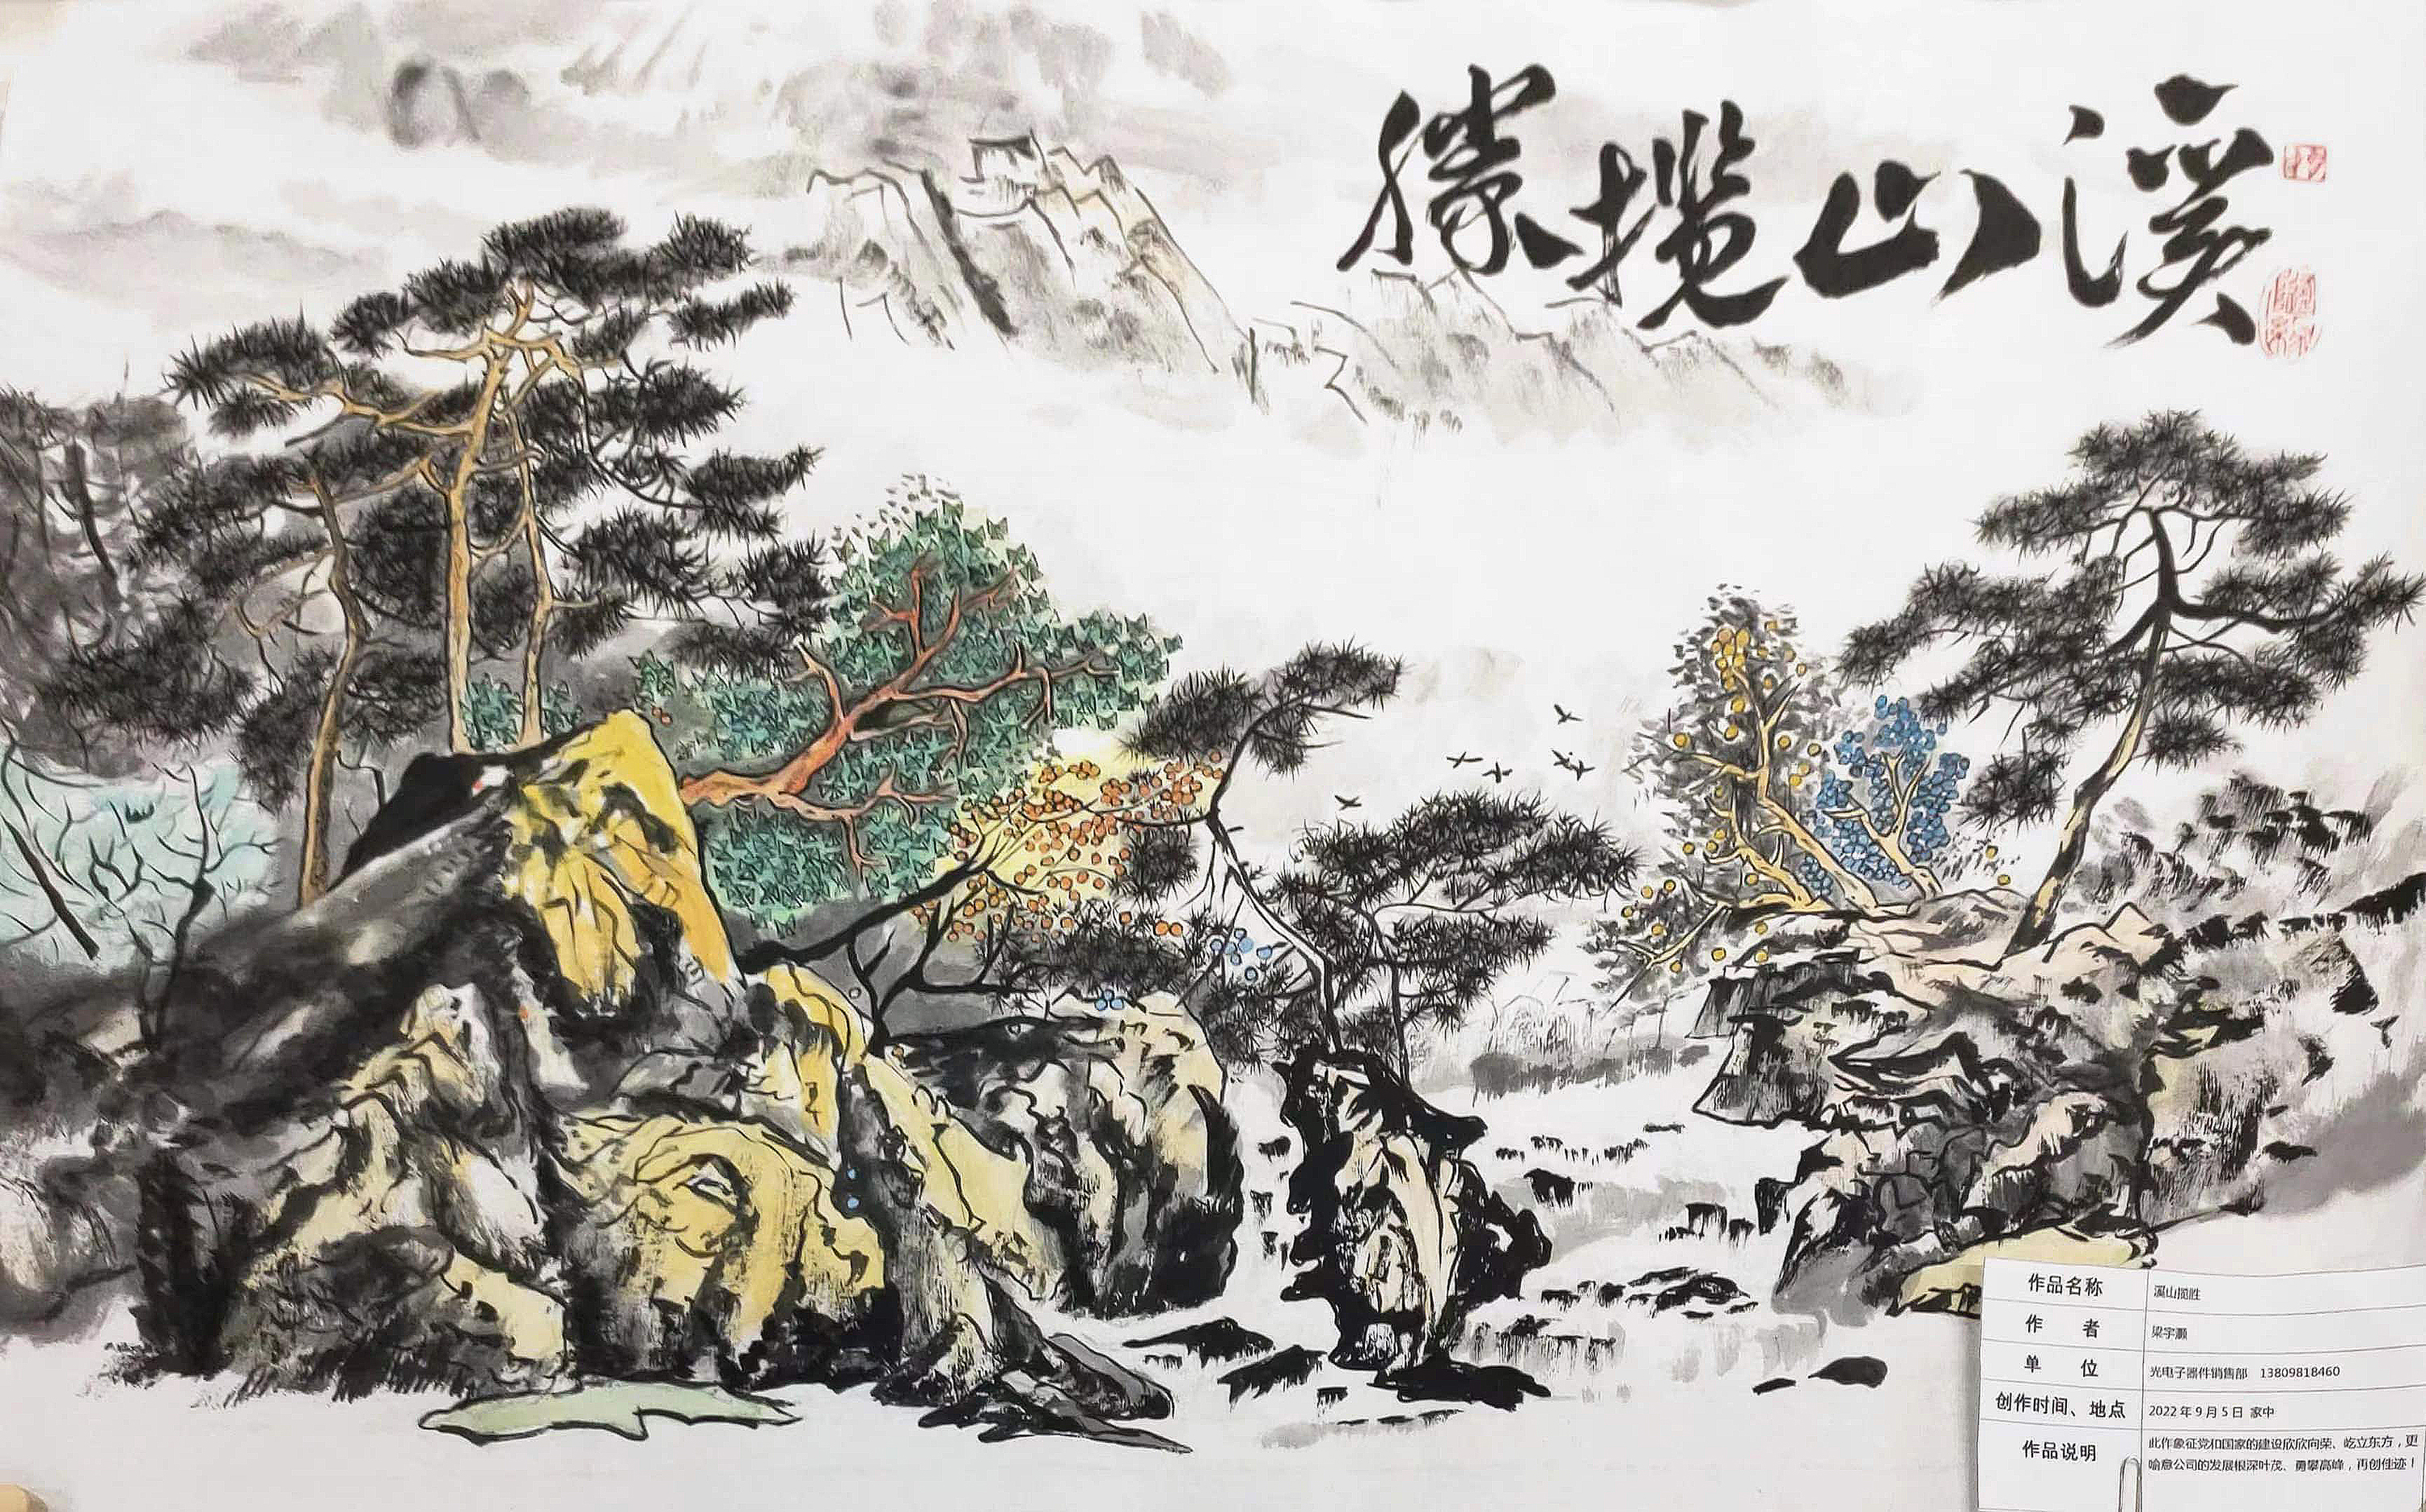 溪山揽勝
作品名称 溪山揽胜
作 者 梁宇灏
单 位 光电子器件销售部 13809818460
创作时间、地点 2022年9月5日 家中
作品说明 此作象征党和国家的建设欣欣向荣、屹立东方，更
喻意公司的发展根深叶茂、勇攀高峰，再创佳迹！